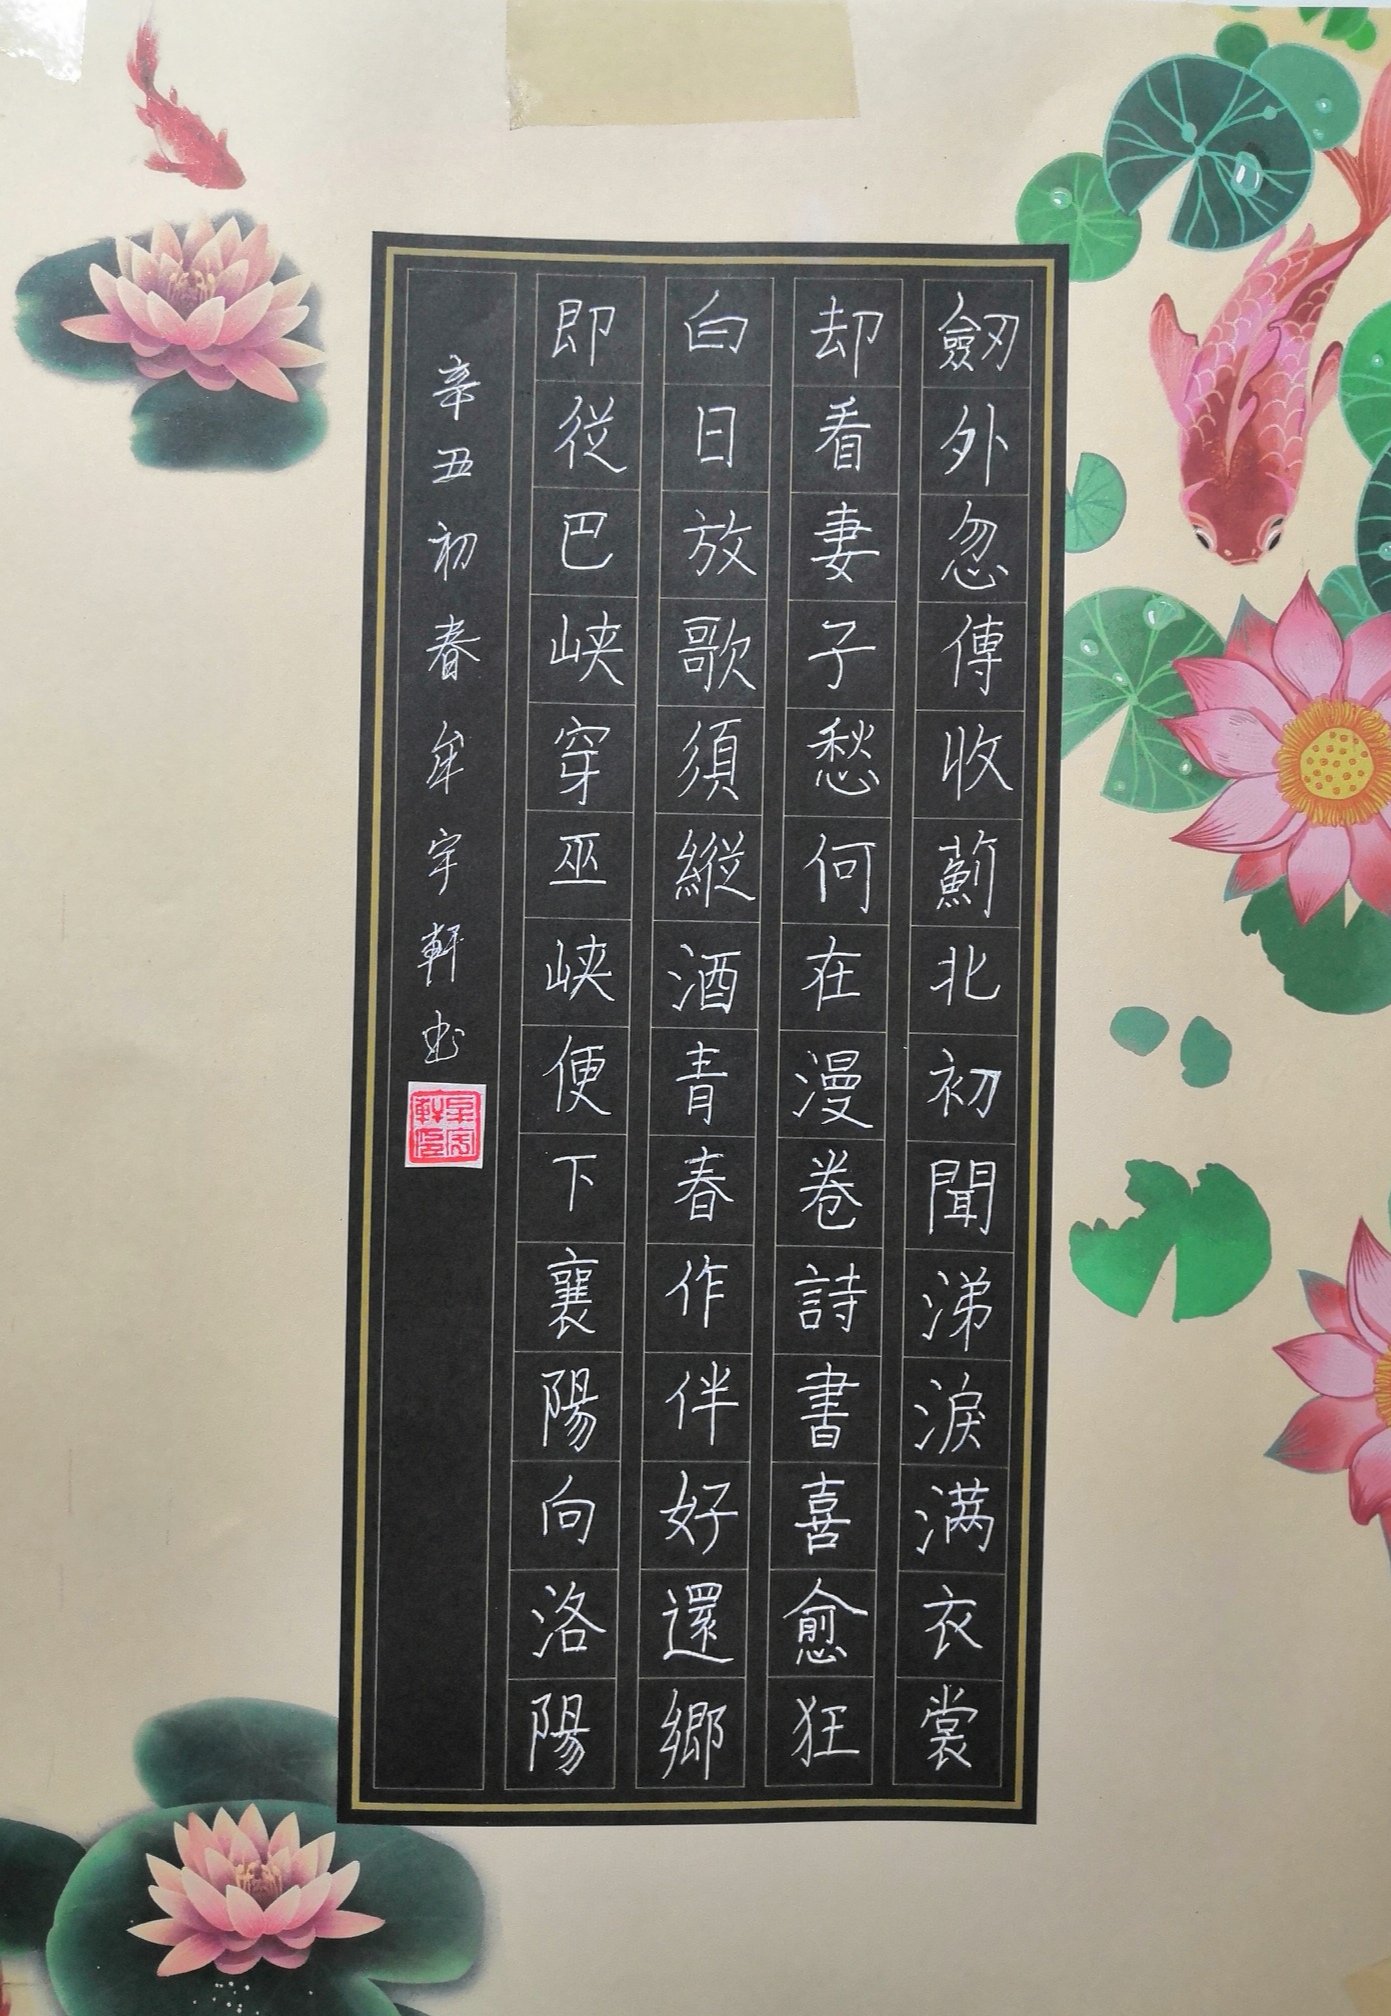 劔外忽傳收薊北初聞涕淚满衣裳
却看妻子愁何在漫卷詩書喜愈狂
白日放歌須縱酒青春作伴好還鄉
即從巴峡穿巫峡便下襄陽向洛陽
辛丑初春牟宇軒书
牟宇軒印